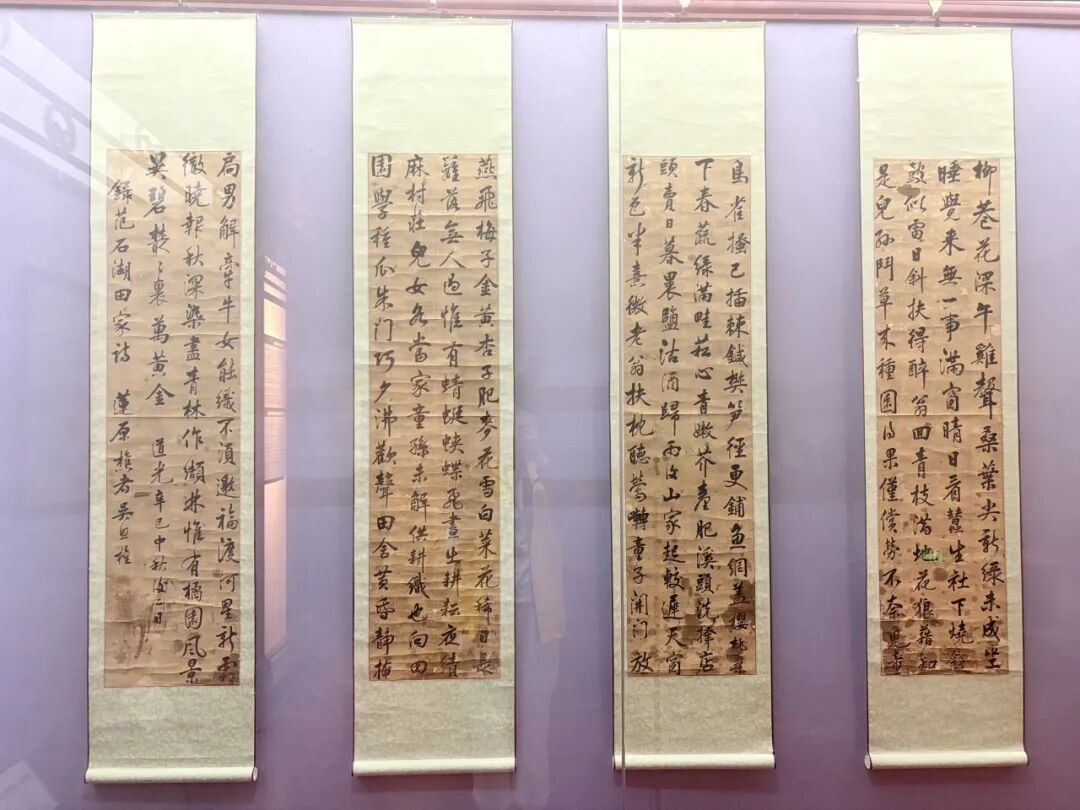 柳巷花深午雞聲桑葉尖新綠未成坐
睡覺來無一事滿窗晴日看蠶生社下燒錢
鼓似雷日斜扶得醉翁回青枝滿地花狼藉知
是兒孫鬥草來種園得果僅償勞不奈兒童
鳥雀搔已插棘鍼樊笋徑更鋪魚網蓋櫻桃桑
下春蔬綠滿畦菘心青嫩芥薹肥溪頭洗擇店
頭賣日暮裹鹽沽酒歸雨後山家起較遲天窗
新色半熹微老翁扶枕聽鶯囀童子開門放
燕飛梅子金黃杏子肥麥花雪白菜花稀日長
籬落無人過惟有蜻蜓蛺蝶飛晝出耕耘夜績
麻村莊兒女各當家童孫未解供耕織也向田
園學種瓜朱門巧夕沸歡聲田舍黃昏靜掩
扃男解牽牛女能織不須邀福渡河星新霜
徹曉報秋深染盡青林作纈林惟有橘園風景
異碧叢々裏萬黃金 道光辛巳中秋後二日
錄范石湖田家詩 蓮原樵者吳旦